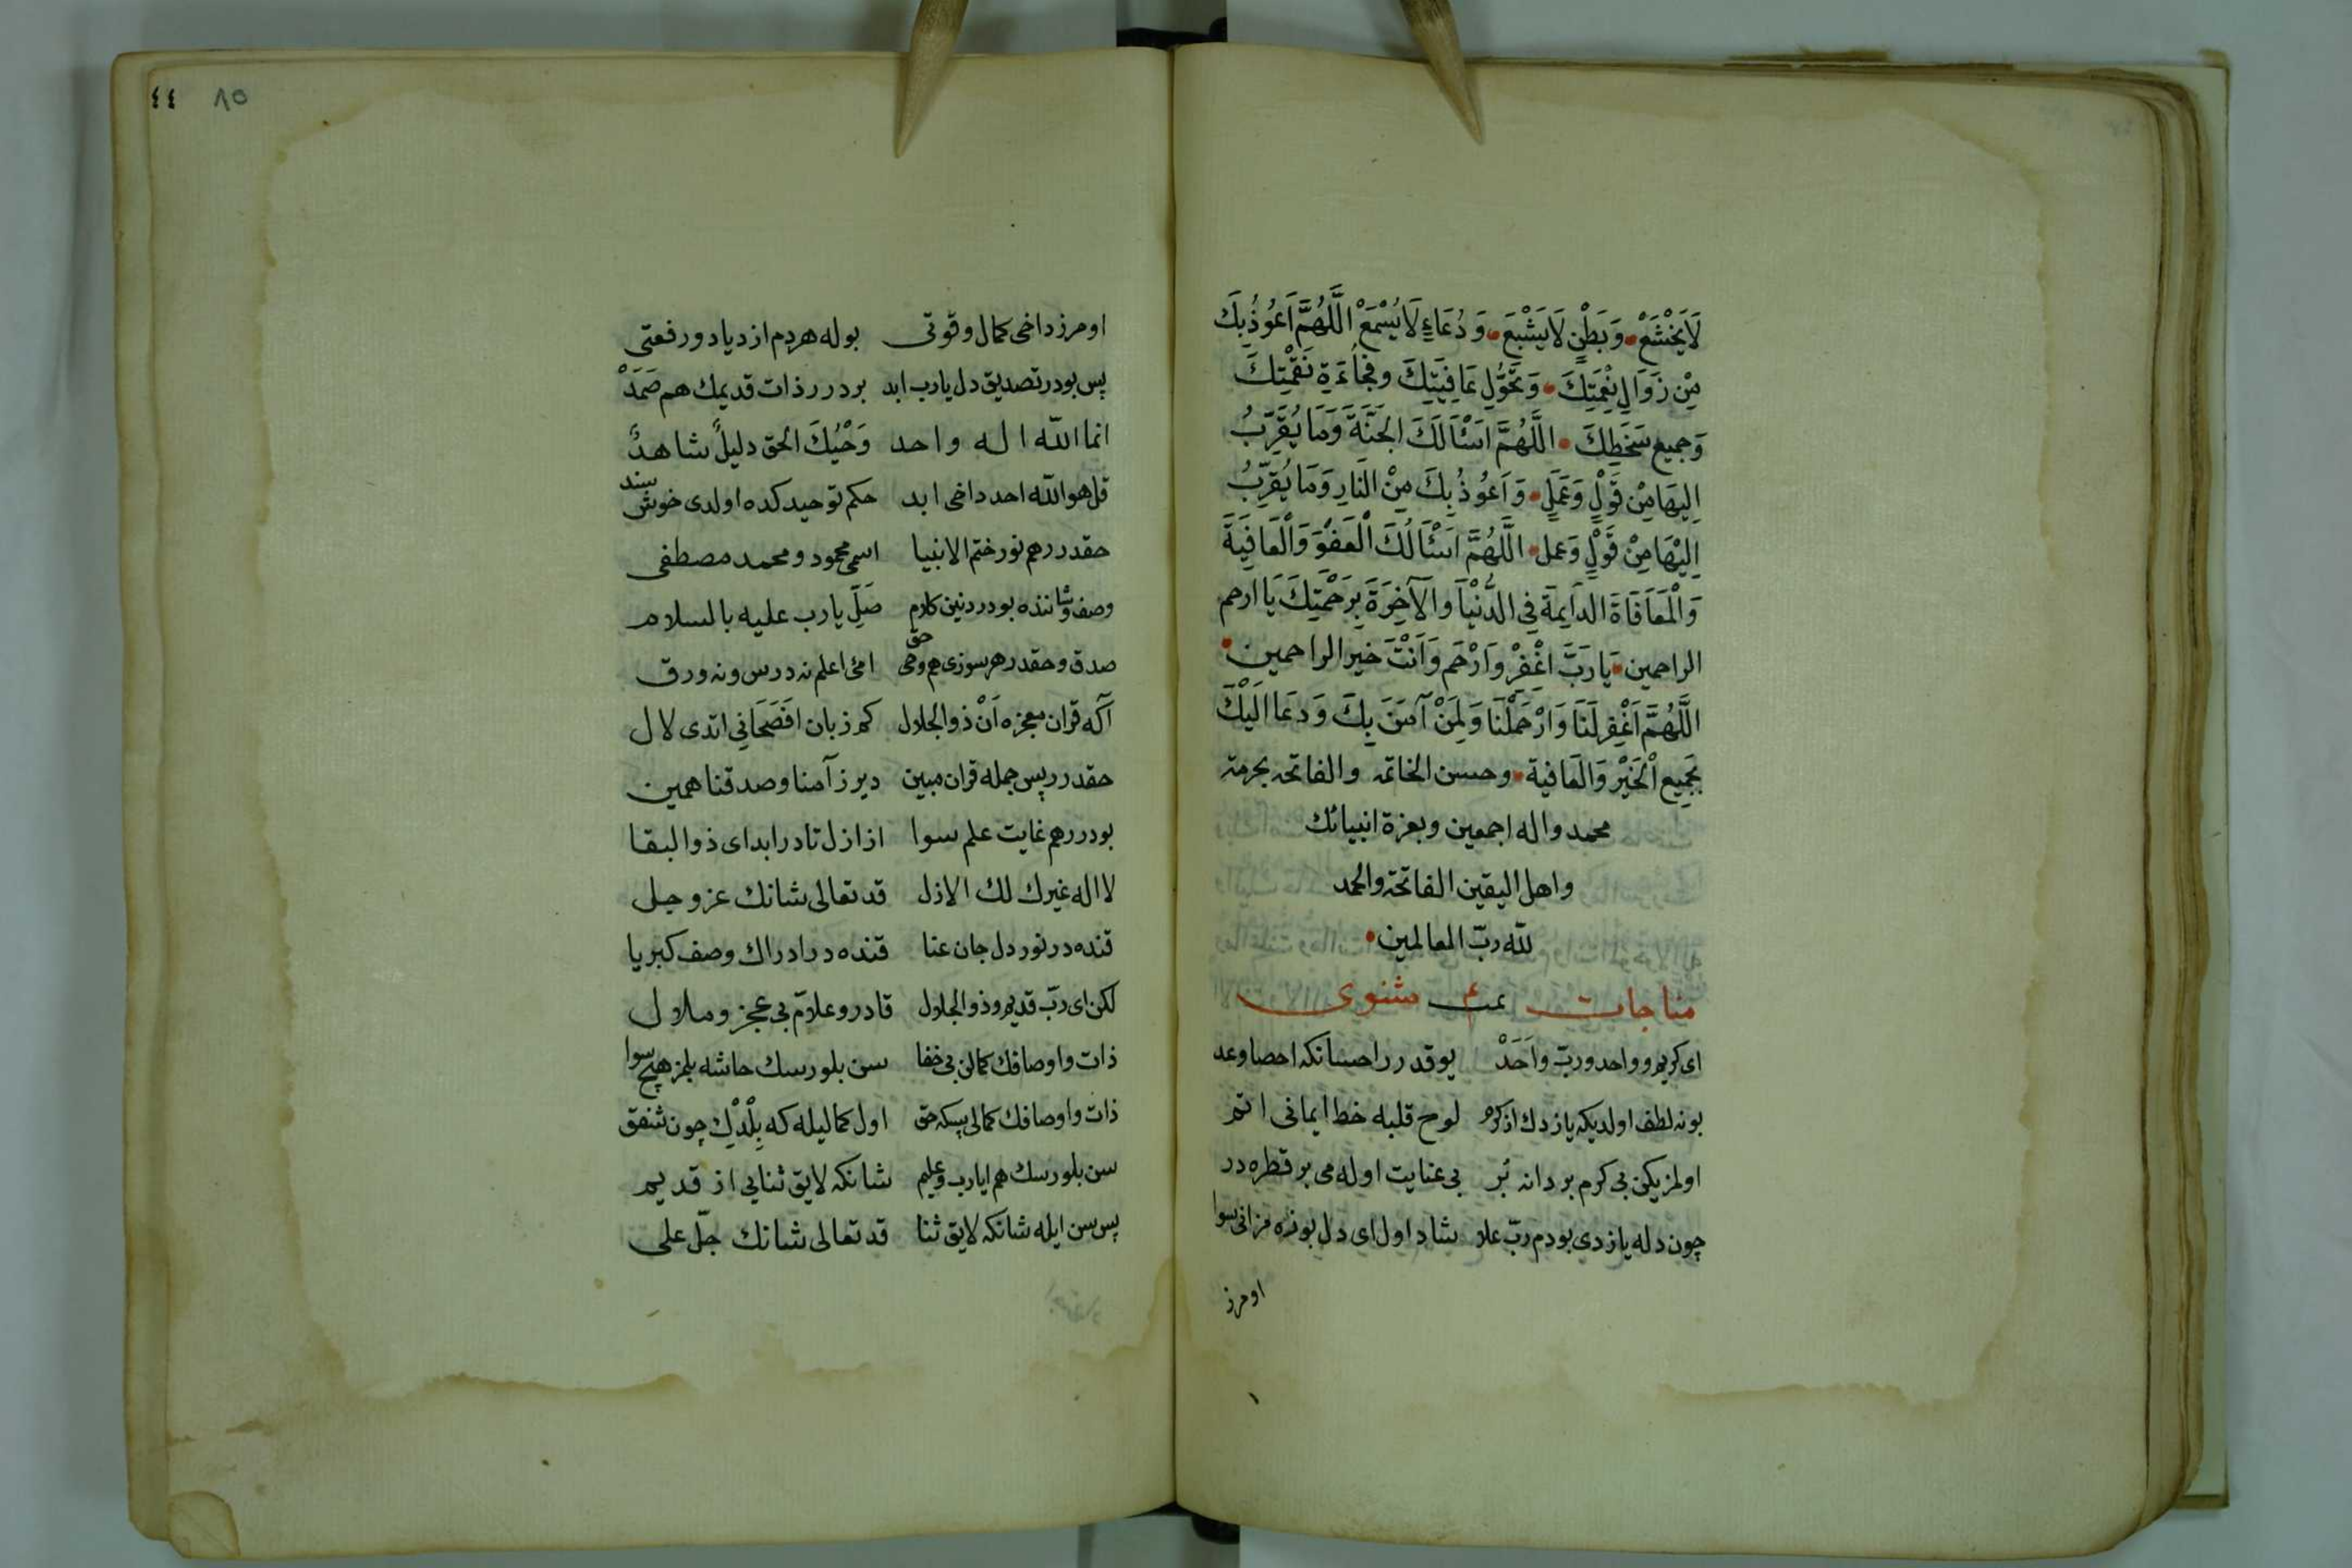 لَا يَخْشَعْ وَبَطْنٍ لَا يَشْبَعَ وَدُعَاءٍ لَا يُسْمَعْ اللَّهُمَّ اَعُوذُ بِكَ
مِنْ زَوَالِ نِعْمَتِكَ وَتَحَوُّلِ عَافِيَتِكَ وفجَاْءَةِ نَقْمَتِكَ
وَجميع سَخَطِكَ اللَّهُمَّ اسْئَالُكَ الجَنَّةَ وَمَا يُقَرِّبُ
اِلَيهَا مِنْ قَوْلٍ وَعَمَلٍ وَاَعُوذُ بِكَ مِنْ النَارِ وَمَا يُقَرِّبُ
اِلَيْهَا مِنْ قَوْلٍ وَعمل اللَّهُمَّ اسْئَالُكَ الْعَفْوَ وَالْعَافِيَةَ
وَالْمعَافَاةَ الدَايِمَةَ فِي الدُّنْيَا والآخِرَةَ بِرَحْمَتِكَ يَا ارحم
الراحمين يَا رَبَّ اغْفِرْ وَارْحَم وَاَنْتَ خير الراحمين
اللَّهُمَّ اَغْفِر لَنَا وَارْحَمْنَا وَلِمَنْ آمَنَ بِكَ وَدعَا اِلَيْكَ
بجَمِيع الْخَيْرْ وَالعَافية وحسن الخاتمه والفاتحه بحرمة
محمد واله اجمعين وبعزة انبيائك
واهل اليقين الفاتحة والحمد
لله ربّ العالمين
مناجات مثنوى
اى كريم وواحد وربّ واَحَدْ يوقدرر احسانكه احصا وعد
بونه لطف اولديكه يازدك از كرم لوح قلبه خط ايمانى اتم
اولمز يكن بى كرم بر دانه بُر بى عنايت اوله مى بر قطره در
چون دله يازدى بودم ربّ علا شاد اول اى دل بوندہ سوا
اومرز
٤٤ ٨٥
اومرز داخى كمال وقوتى بوله هردم ازدياد ورفعتى
پس بودر تصديق دل يارب ابد بردرر ذات قديمك هم صَمَدْ
انما الله اله واحد وَحْيُكَ الحق دليلٌ شاهدٌ
قل هو الله احد داخى ابد حكم توحيد كده اولدى خوش سند
حقدرر هم نور ختم الانبيا اسمى محمود ومحمد مصطفى
وصف وشاننده بودر دنين كلام صَلِّ يارب عليه بالسلام
صدق وحقدر هر سوزى هم وحى حق امى اعلم نه درس ونه ورق
آكه قران معجزه اَنْ ذو الجلال كم زبان افَصَحَانِى اتدى لال
حقدرر پس جمله قران مبين ديرز آمنا وصدقنا همين
بودرر هم غايت علم سوا از ازل تا در ابد اى ذو البقا
لا اله غيرك لك الازل قد تعالى شانك عز وجل
قنده در نور دل جان عنا قنده در ادراك وصف كبريا
لكن اى ربّ قديم وذو الجلال قادر وعلاّم بى عجز وملال
ذات واوصافك كمالن بى خفا سن بلورسك حاشه بلمز هيچ سوا
ذات واوصافك كمالى بيسكه حق اول كماليله كه بِلْدِكْ چون
سن بلورسك هم ايا رب وعليم شانكه لايق ثنايى از قديم
پس سن ايله شانكه لايق ثنا قد تعالى شانك جلّ على